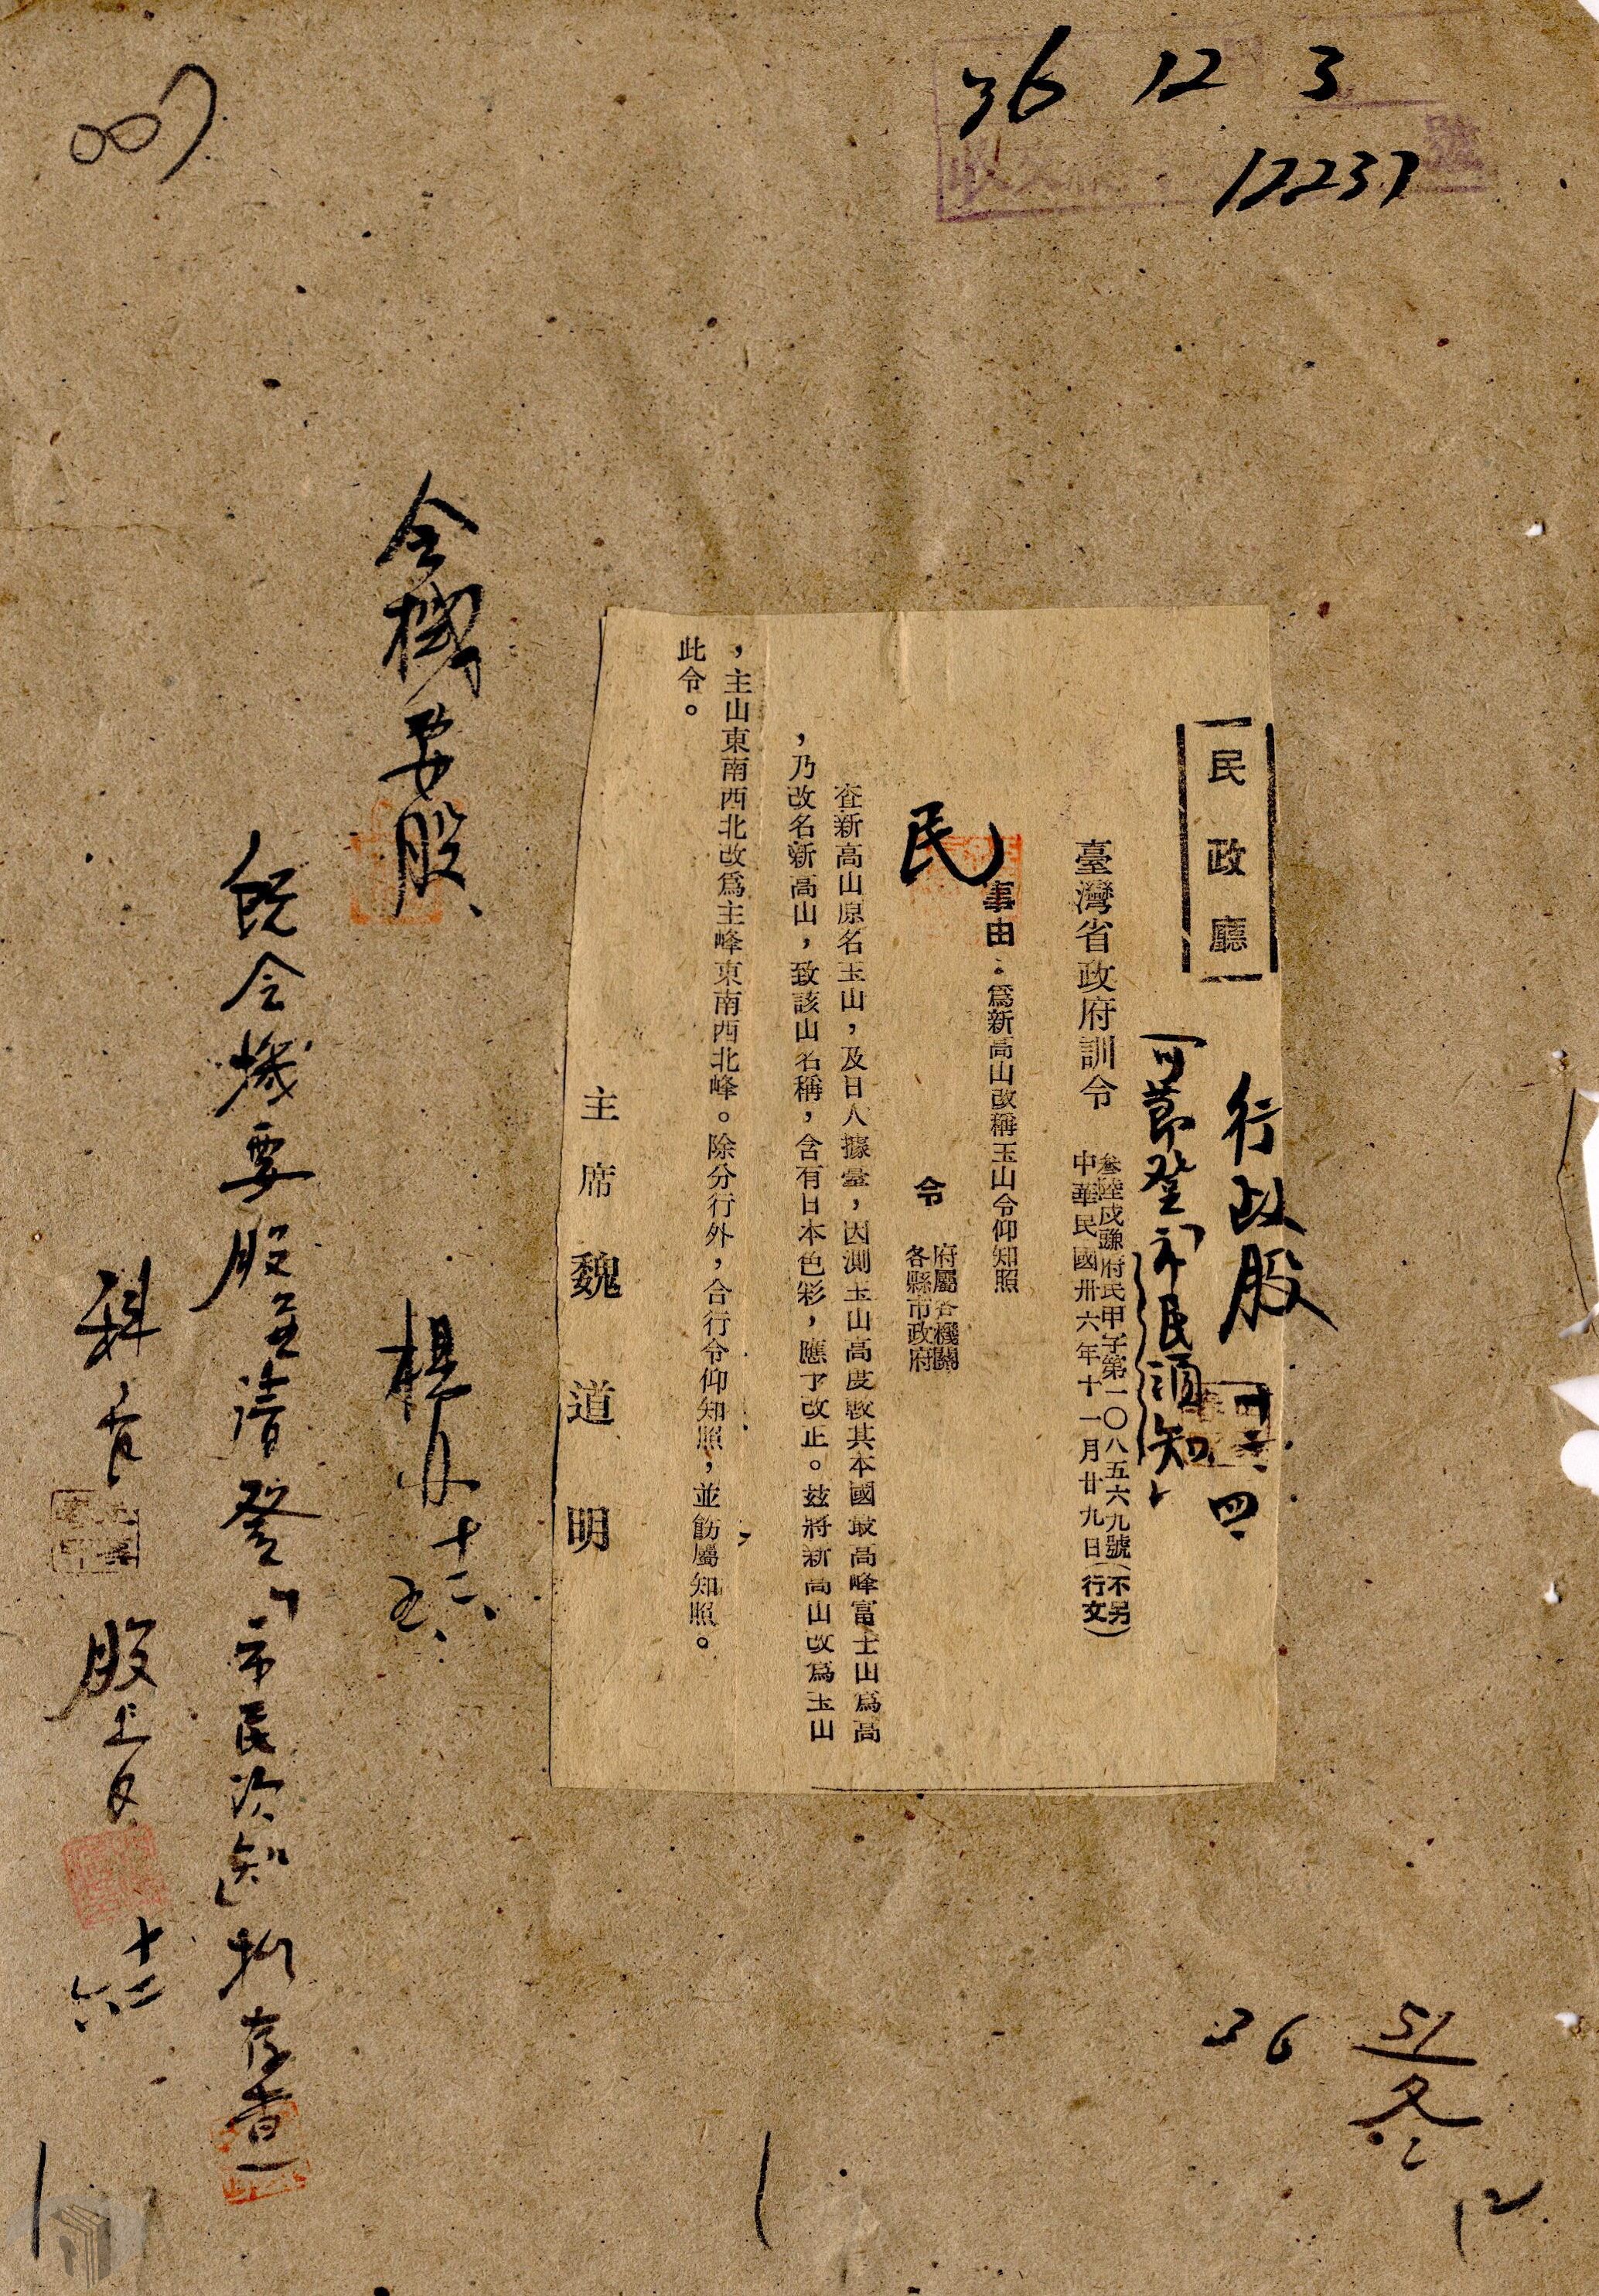 36 12 3
12237
007
行政股
十二、四、
「可節登「市民須知」
民政廳
臺灣省政府訓令
叁陸戌豔府民甲字第一〇八五六九號(不另
中華民國卅六年十一月廿九日(行文)
事由:爲新高山改稱玉山令仰知照
民
令
府屬各機關
各縣市政府
查新高山原名玉山,及日人據臺,因測玉山高度較其本國最高峰富士山爲高
,乃改名新高山,致該山名稱,含有日本色彩,應予改正。茲將新高山改爲玉山
,主山東南西北改爲主峰東南西北峰。除分行外,合行令仰知照,並飭屬知照。
此令。
主席 魏道明
會機要股、
楊 十二、五、
經會機要股並請登「市民須知」擬存查
科員 股長
十二六、
36
51
冬
12